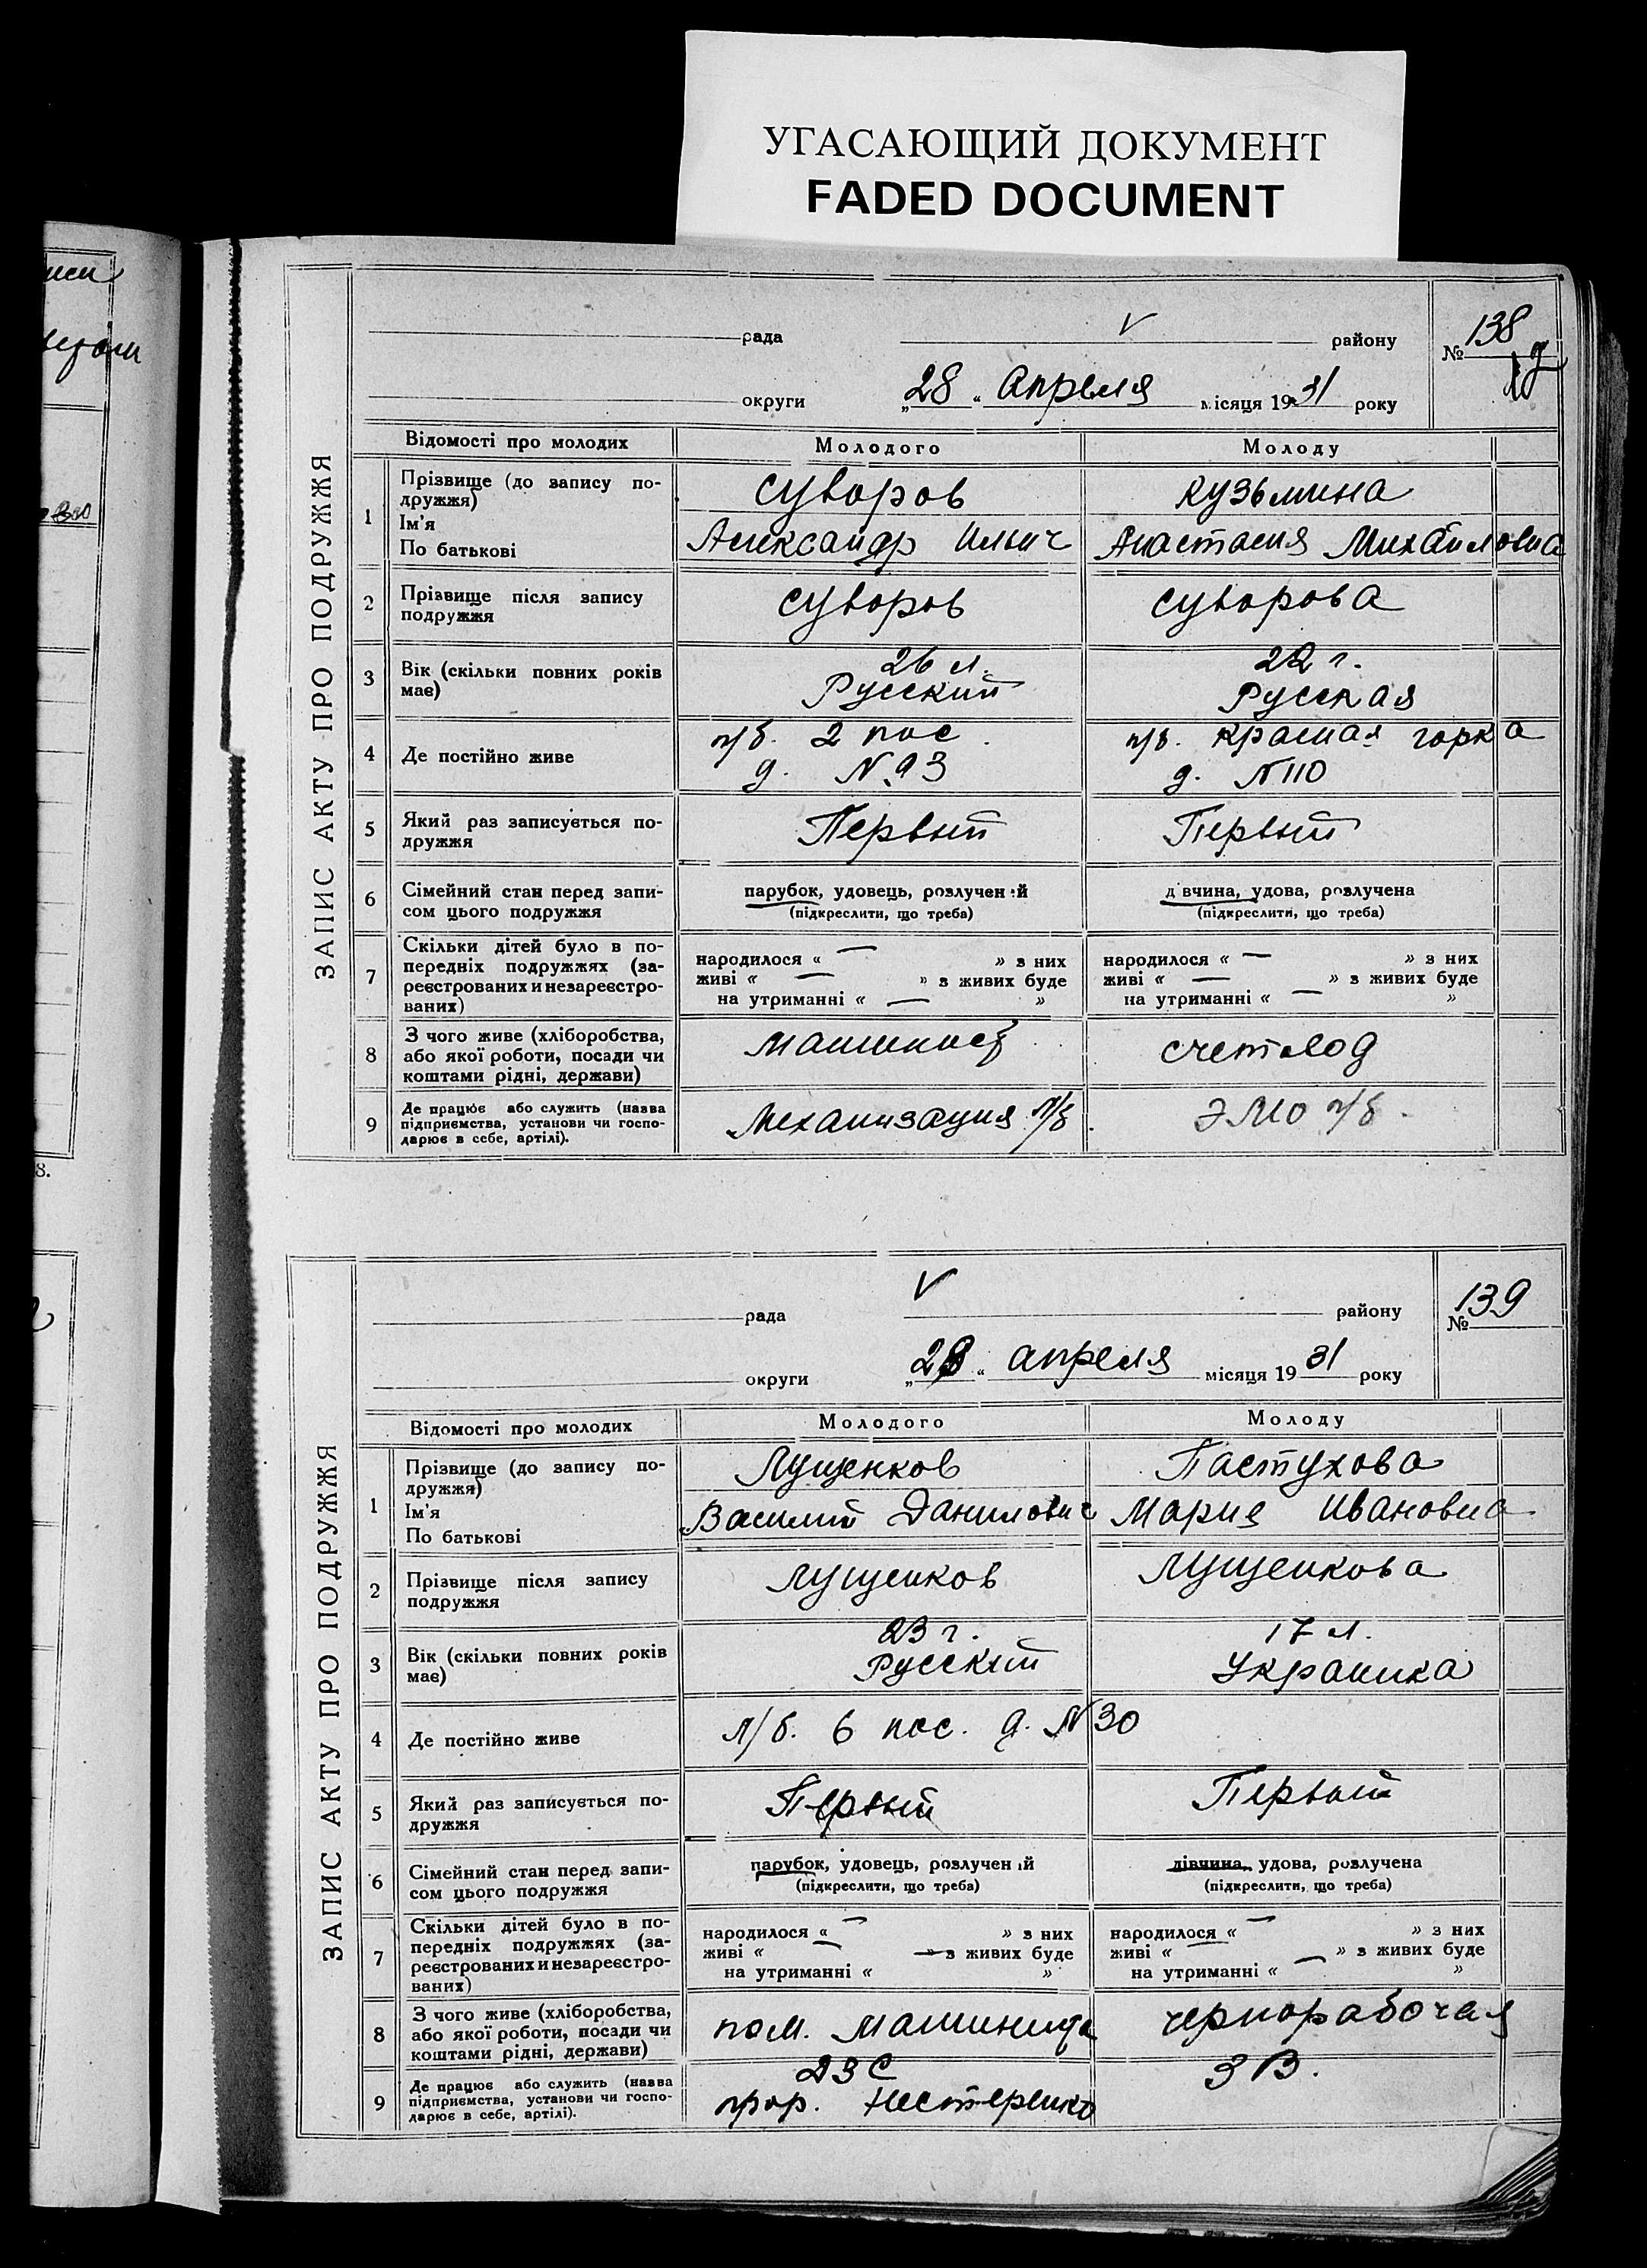 УГАСАЮЩИЙ ДОКУМЕНТ
FADED DOCUMENT
ЗАПИС АКТУ ПРО ПОДРУЖЖЯ
рада V району
№ 138
округи „28“ Апреля місяця 1931 року
Відомості про молодих Молодого Молоду
1 Прізвище (до запису по-
дружжя) Суворов Кузьмина
Ім'я
По батькові Александр Ильич Анастасия Михайловна
2 Прізвище після запису
подружжя Суворов Суворова
3 Вік (скільки повних років
має) 26 л. Русский 22 г. Русская
4 Де постійно живе п/б. 2 пос. п/б. Красная горка
д. № 93 д. № 110
5 Який раз записується по-
дружжя Первый Первый
6 Сімейний стан перед запи-
сом цього подружжя парубок, удовець, розлучений дівчина, удова, розлучена
(підкреслити, що треба) (підкреслити, що треба)
7 Скільки дітей було в по-
передніх подружжях (за-
реєстрованих и незареєстро-
ваних) народилося « — » з них народилося « — » з них
живі « — » з живих буде живі « — » з живих буде
на утриманні « — » на утриманні « — »
8 З чого живе (хліборобства,
або якої роботи, посади чи
коштами рідні, держави) машинист счетовод
9 Де працює або служить (назва
підприємства, установи чи госпо-
дарює в себе, артілі). Механизация п/б. ЭМО п/б.
8.
ЗАПИС АКТУ ПРО ПОДРУЖЖЯ
рада V району
№ 139
округи „28“ апреля місяця 1931 року
Відомості про молодих Молодого Молоду
1 Прізвище (до запису по-
дружжя) Лущенков Пастухова
Ім'я
По батькові Василий Данилович Мария Ивановна
2 Прізвище після запису
подружжя Лущенков Лущенкова
3 Вік (скільки повних років
має) 23 г. Русский 17 л. Украинка
4 Де постійно живе л/б. 6 пос. д. № 30
5 Який раз записується по-
дружжя Первый Первый
6 Сімейний стан перед запи-
сом цього подружжя парубок, удовець, розлучений дівчина, удова, розлучена
(підкреслити, що треба) (підкреслити, що треба)
7 Скільки дітей було в по-
передніх подружжях (за-
реєстрованих и незареєстро-
ваних) народилося « — » з них народилося « — » з них
живі « — » з живих буде живі « — » з живих буде
на утриманні « » на утриманні « — »
8 З чого живе (хліборобства,
або якої роботи, посади чи
коштами рідні, держави) пом. машиниста чернорабочая
9 Де працює або служить (назва
підприємства, установи чи госпо-
дарює в себе, артілі). ДЗС ЗВ.
прор. Нестеренко